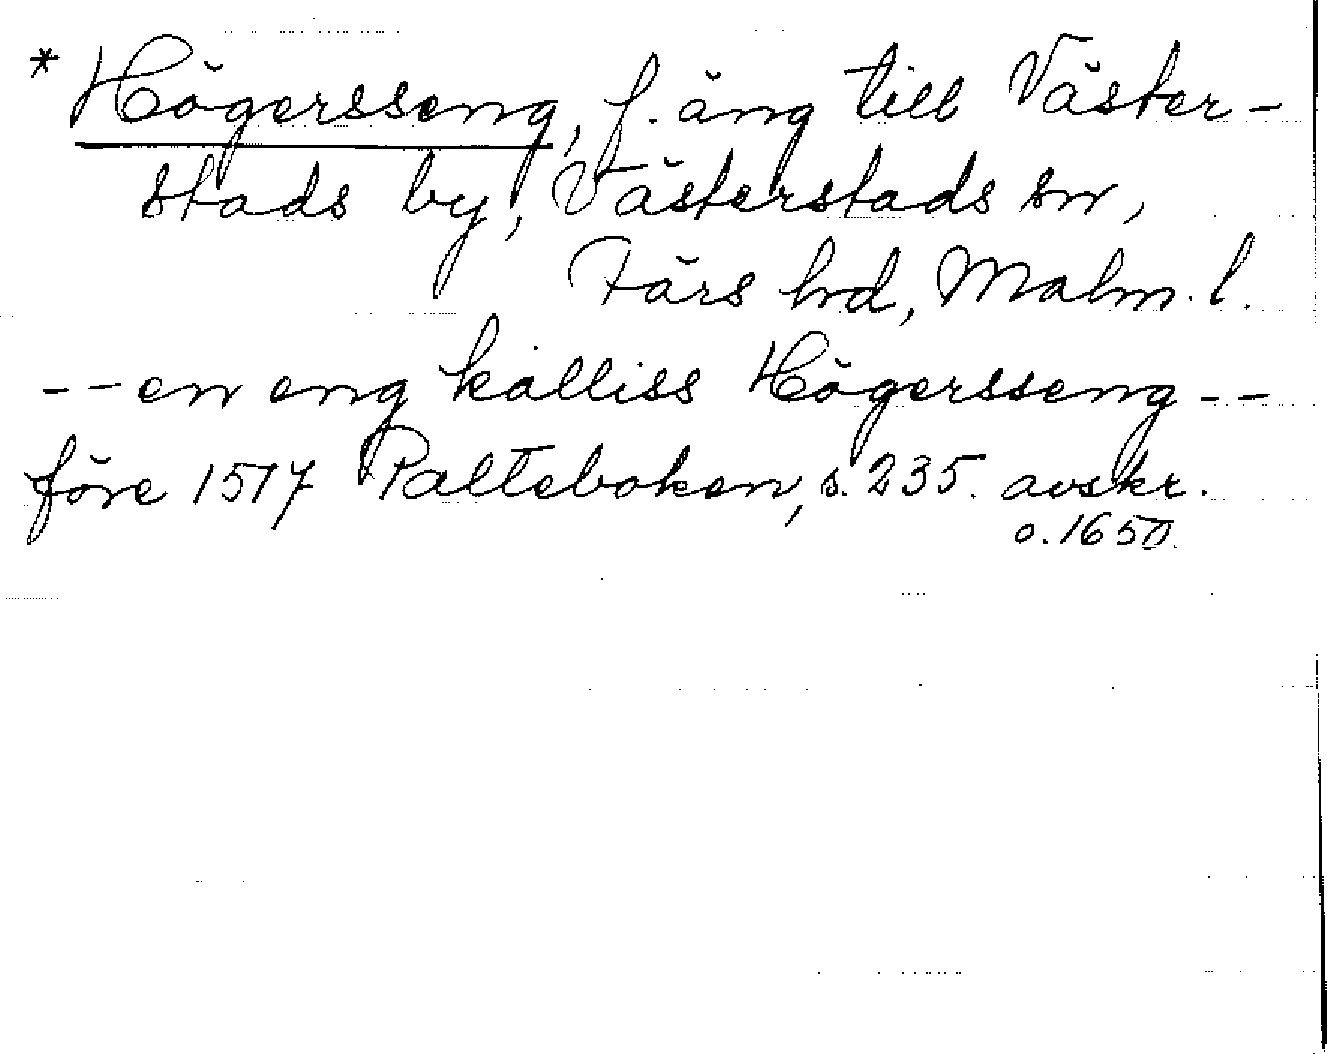 * Högersseng, f. äng till Väster-
stads by, Västerstads sn,
Färs hd, Malm. l.
-- en eng kalliss Högersseng --
före 1517 Palteboken, s. 235. avskr.
o. 1650.